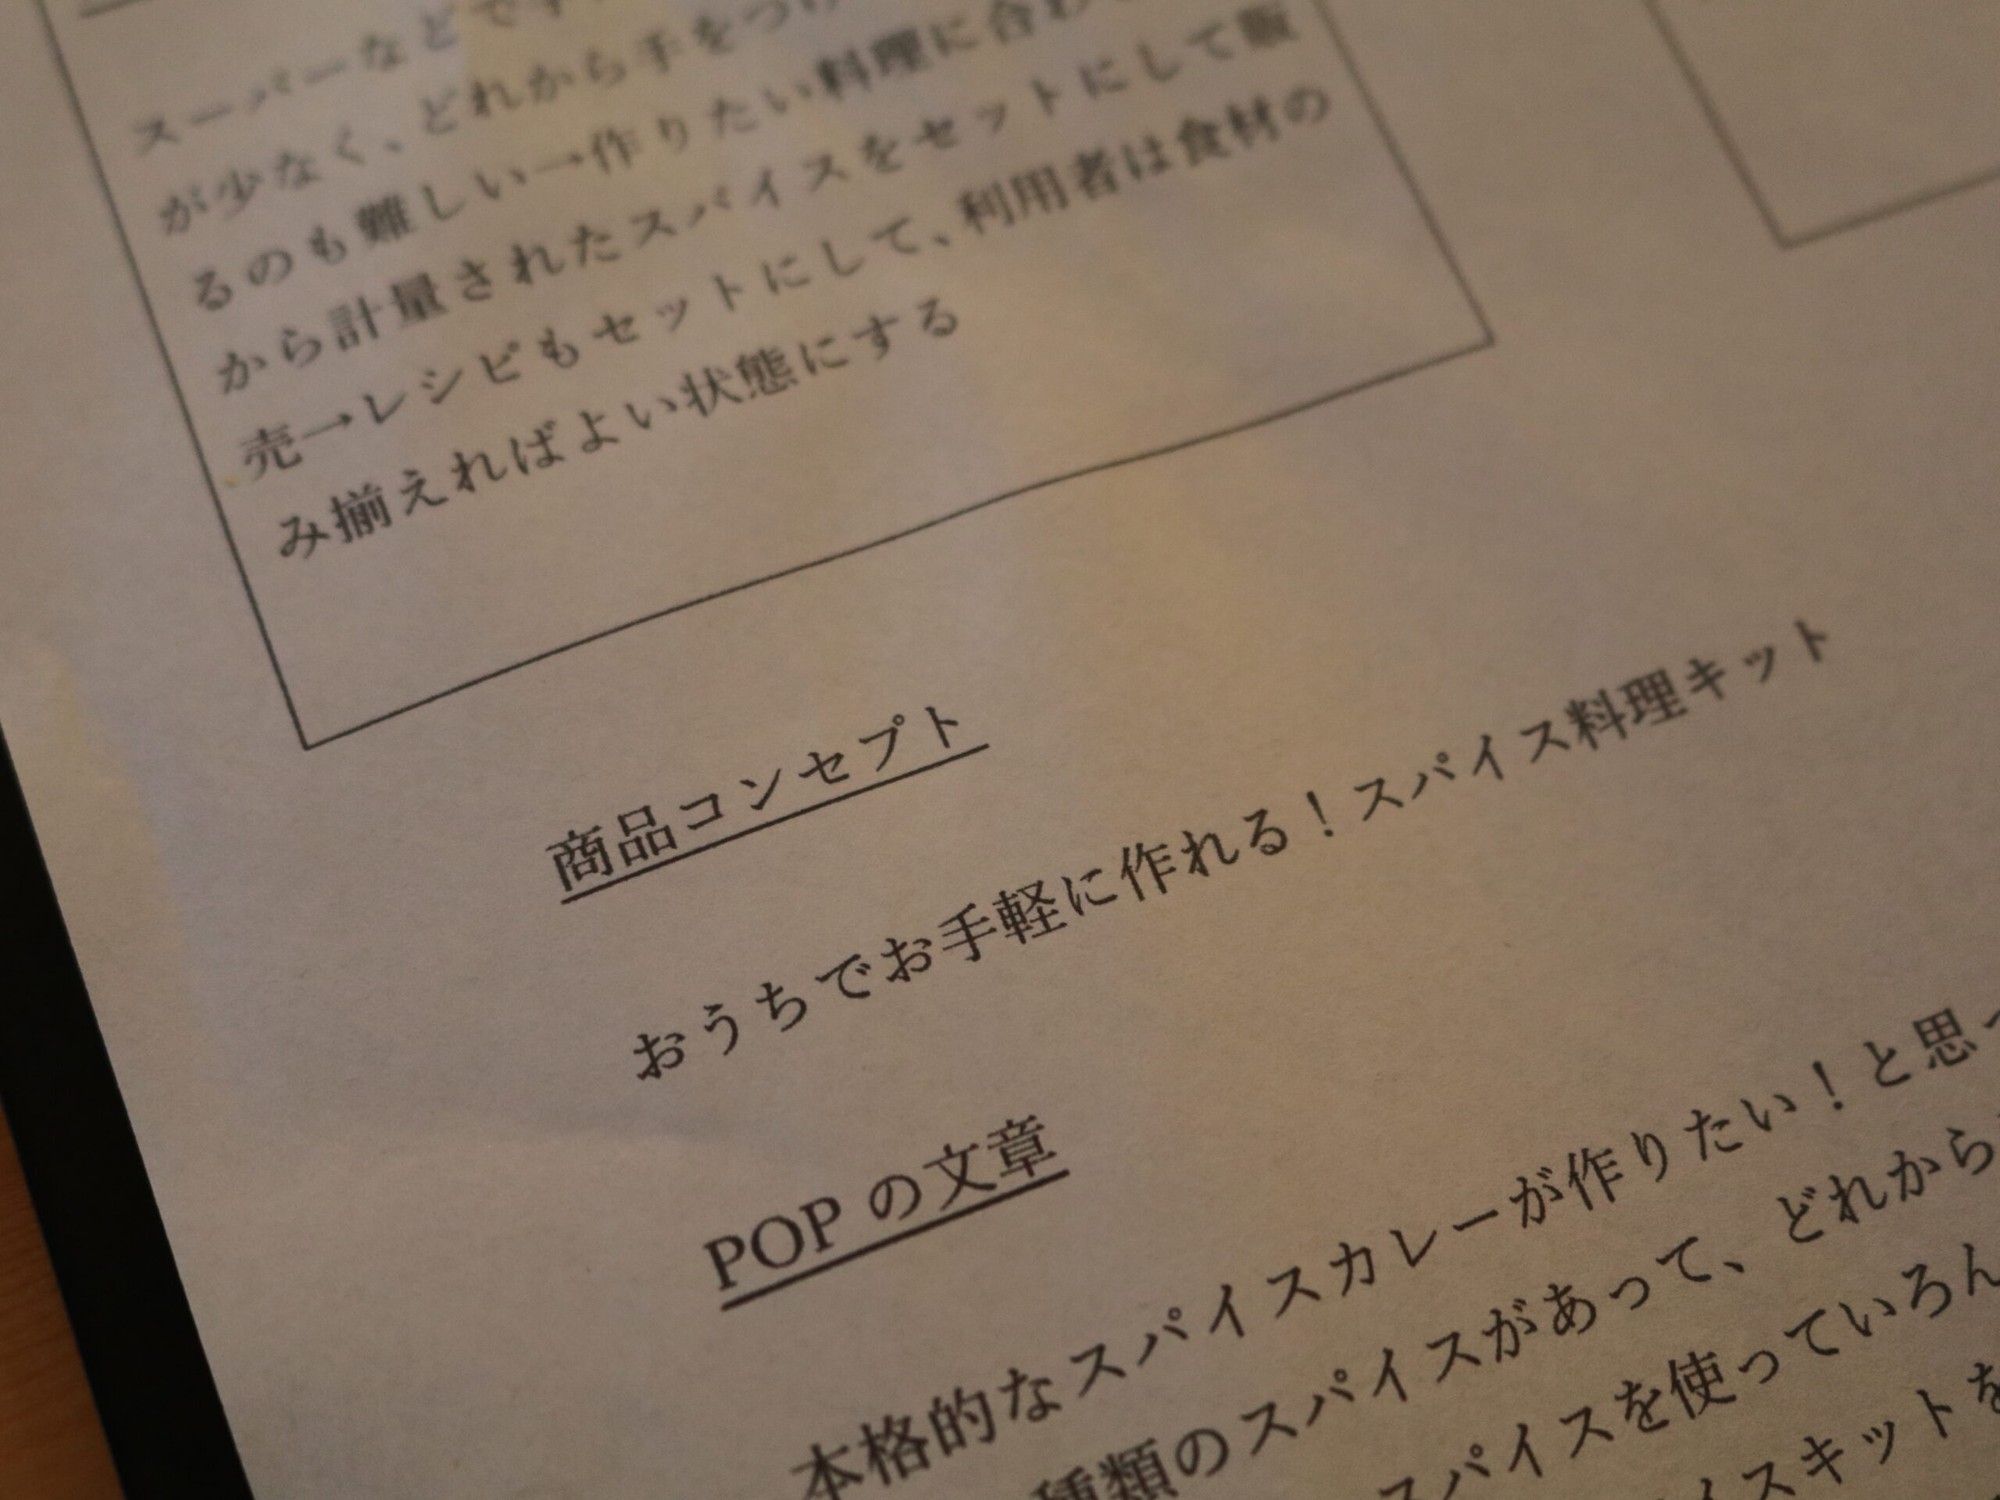 スーパーなどで
が少なく、どれから手をつけ
るのも難しい→作りたい料理に合わ
から計量されたスパイスをセットにして販
売→レシピもセットにして、利用者は食材の
み揃えればよい状態にする
商品コンセプト
おうちでお手軽に作れる！スパイス料理キット
POPの文章
本格的なスパイスカレーが作りたい！と思っ
種類のスパイスがあって、どれから
スパイスを使っていろん
イスキットを